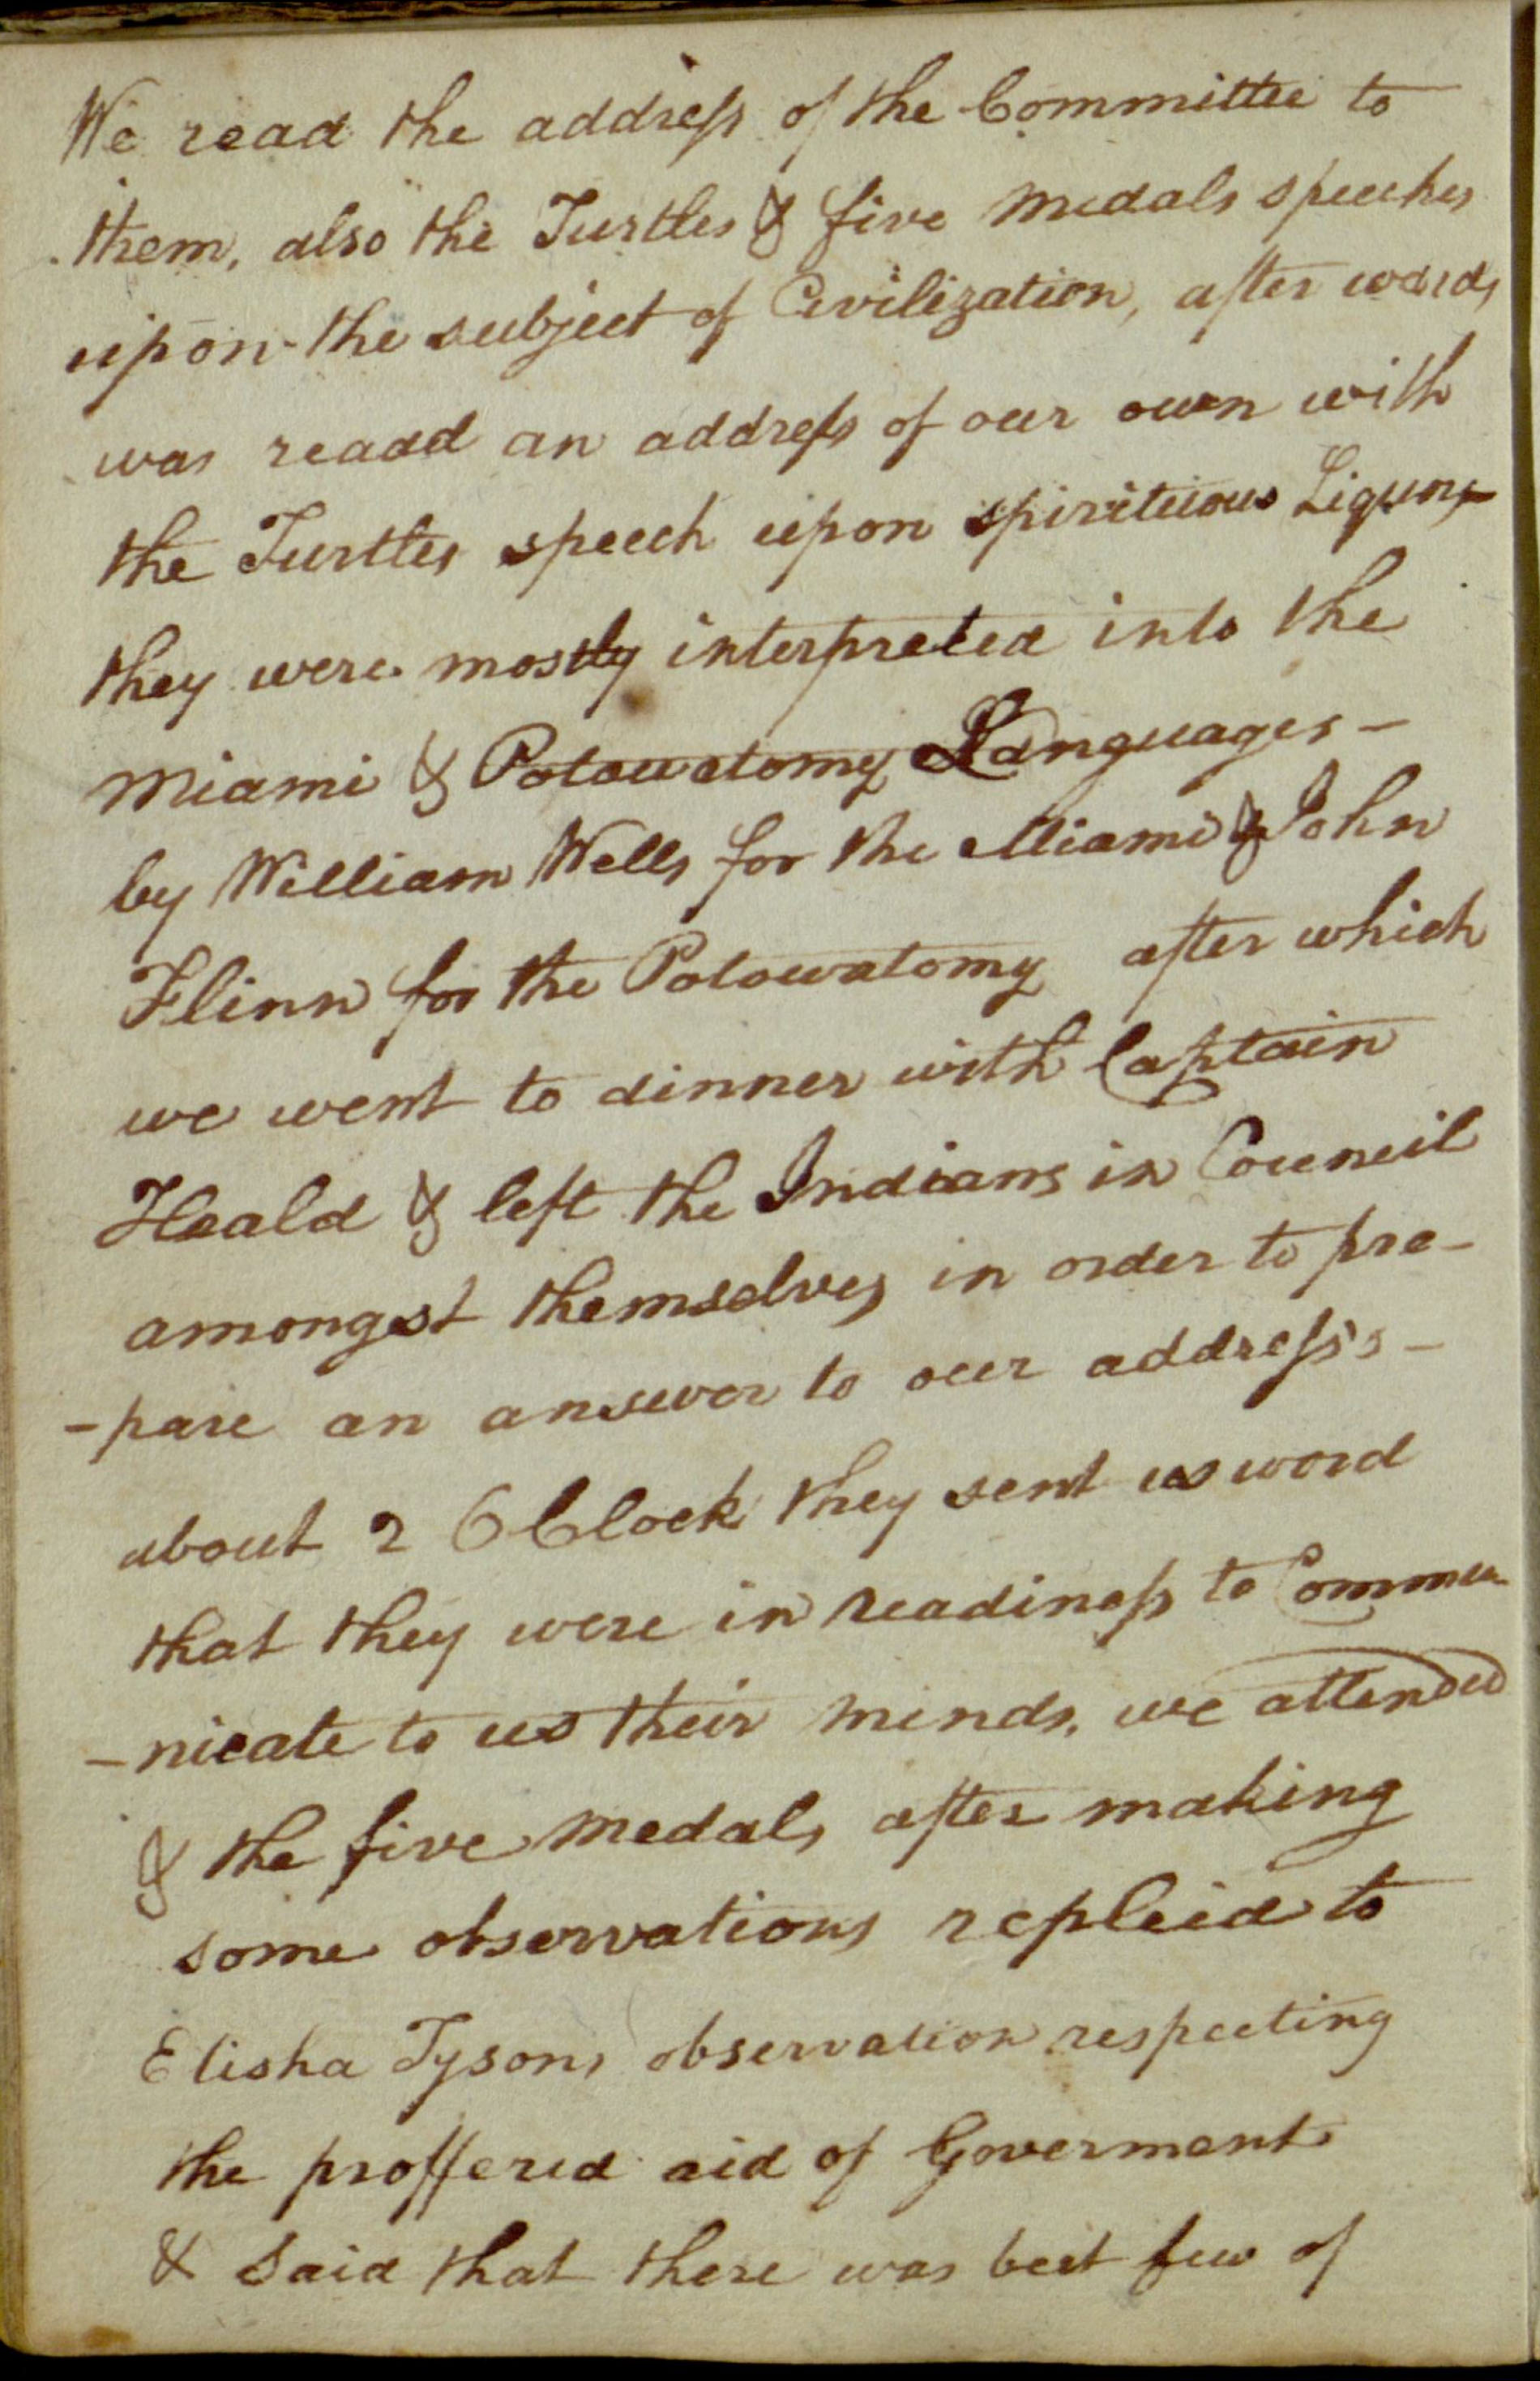 We read the address of the Committee to
them, also the Turtles & five medals speeches
upon the subject of Civilization, after wards
was readd an address of our own with
the Turtles speech upon spirituous Liquors
they were mostly interpreted into the
Miami & Potowatomy Languages -
by William Wells for the Miami & John
Flinn for the Potowatomy after which
we went to dinner with Captain
Heald & left the Indians in Council
amongst themselves in order to pre-
-pare an answer to our address's -
about 2 OClock they sent us word
that they were in readiness to Commu
-nicate to us their minds, we attended
& the five medals after making
some observations repleid to
Elisha Tysons observation respecting
the proffered aid of Goverment
& said that there was but few of